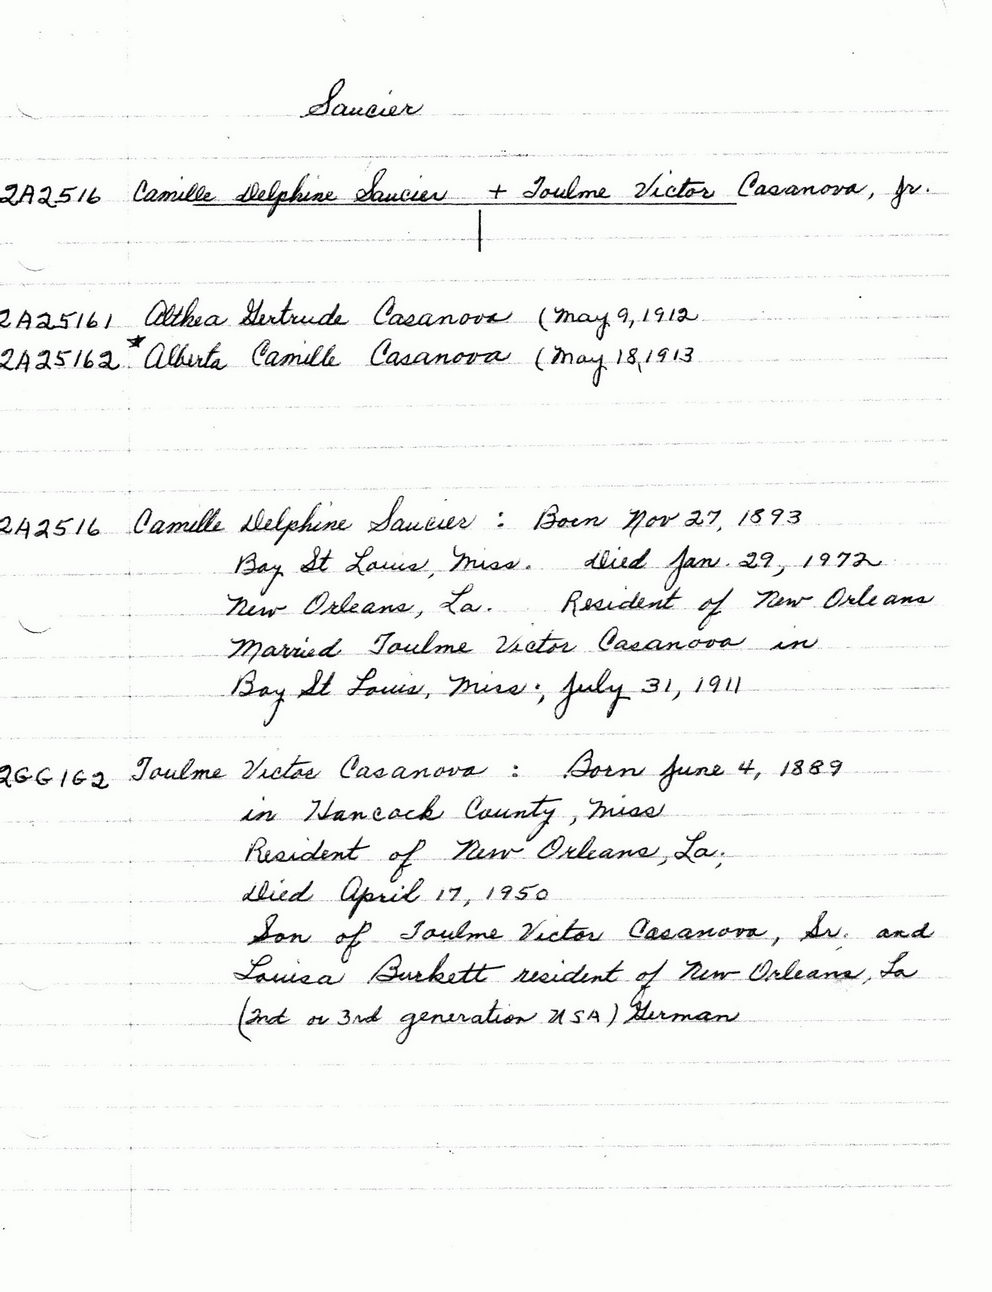 Saucier
2A2516 Camille Delphine Saucier + Toulme Victor Casanova, Jr.
2A25161 Althea Gertrude Casanova (May 9, 1912
2A25162 * Alberta Camille Casanova (May 18, 1913
2A2516 Camille Delphine Saucier : Born Nov 27, 1893
Bay St Louis, Miss. Died Jan. 29, 1972
New Orleans, La. Resident of New Orleans
Married Toulme Victor Casanova in
Bay St Louis, Miss; July 31, 1911
2GG1G2 Toulme Victor Casanova : Born June 4, 1889
in Hancock County, Miss
Resident of New Orleans, La;
Died April 17, 1950
Son of Toulme Victor Casanova, Sr. and
Louisa Burkett resident of New Orleans, La
(2nd or 3rd generation USA) German